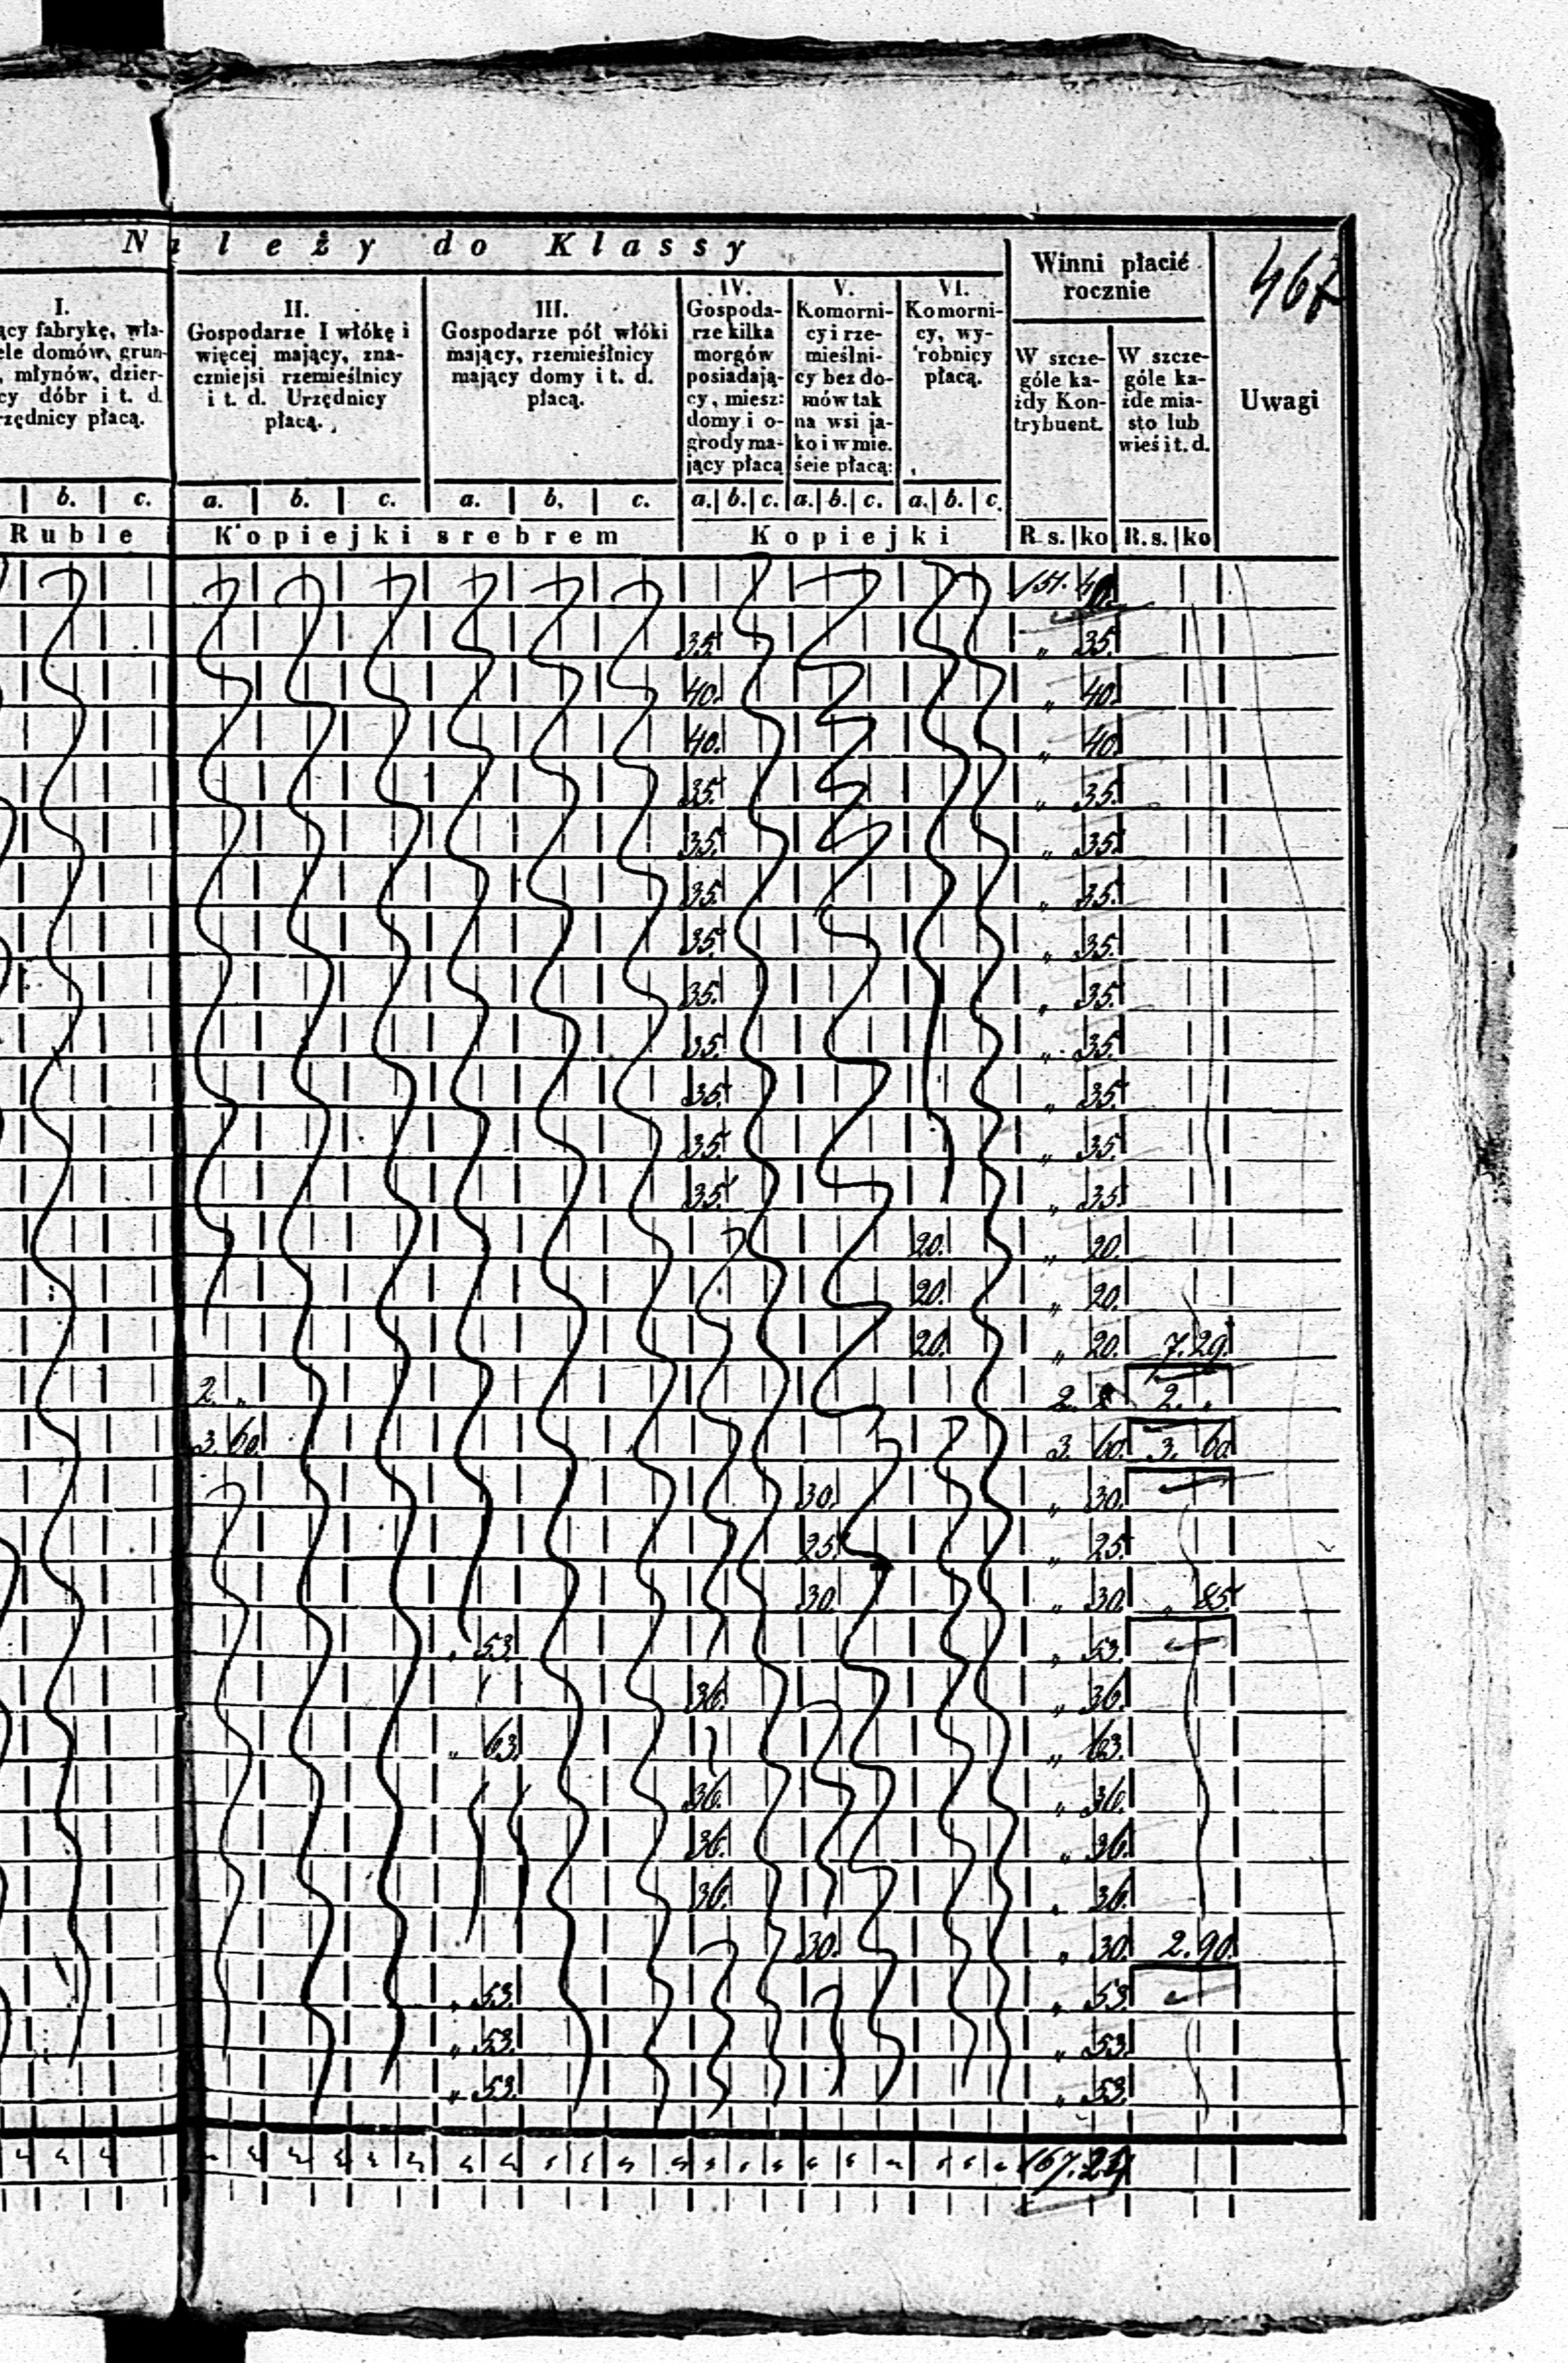 Należy do Klassy
Winni płacić rocznie
Uwagi
I.
ący fabrykę, wła-
ele domów, grun-
, młynów, dzier-
cy dóbr i t. d.
rzędnicy płacą.
II.
Gospodarze I włókę i
więcej mający, zna-
czniejsi rzemieślnicy
i t. d. Urzędnicy
płacą.
III.
Gospodarze pół włóki
mający, rzemieślnicy
mający domy i t. d.
płacą.
IV.
Gospoda-
rze kilka
morgów
posiadają-
cy, miesz:
domy i o-
grody ma-
jący płacą
V.
Komorni-
cy i rze-
mieślni-
cy bez do-
mów tak
na wsi ja-
ko i w mie.
ście płacą:
VI.
Komorni-
cy, wy-
robnicy
płacą.
W szcze-
góle ka-
żdy Kon-
trybuent.
W szcze-
góle ka-
żde mia-
sto lub
wieś i t. d.
b. c. a. b. c. a. b, c. a. b. c. a. b. c. a. b. c.
Ruble Kopiejki srebrem Kopiejki R. s. ko R. s. ko
151. 40.
35. " 35.
40. " 40.
40. " 40.
35. " 35.
35. " 35.
35. " 35.
35. " 35.
35. " 35.
35. " 35.
35. " 35.
35. " 35.
35. " 35.
20. " 20.
20. " 20.
20. " 20. 7. 20.
2. " 2. 2. "
3. 60. 3. 60. 3. 60.
30. " 30.
25. " 25.
30. " 30. " 85.
" 53. " 53.
36. " 36.
" 63. " 63.
36. " 36.
36. " 36.
36. " 36.
30. " 30. 2. 90.
" 53. " 53.
" 53. " 53.
" 53. " 53.